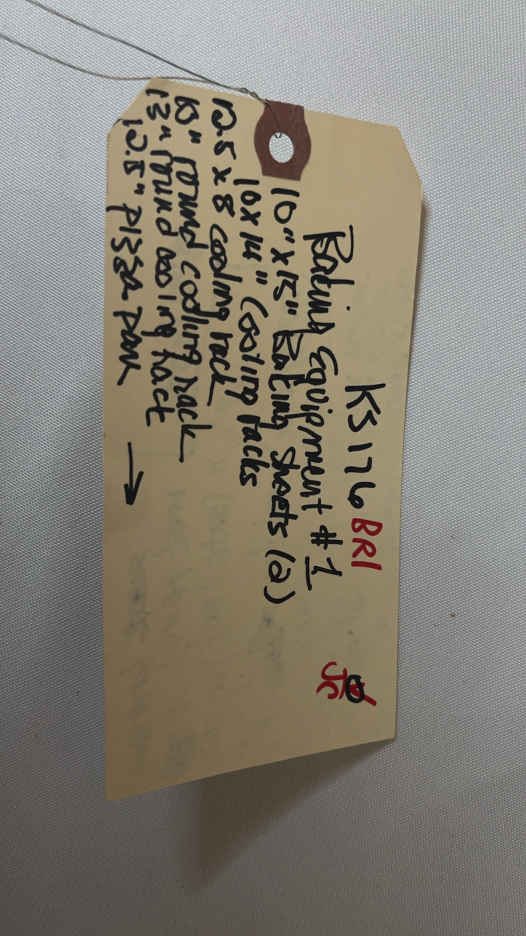 KS176 BRI
Baking Equipment #1
10" x 15" Baking Sheets (2)
10 x 14" Cooling racks
12.5 x 8 cooling rack
10" round cooling rack
13" round cooling rack
12.5" pizza pan →
JC